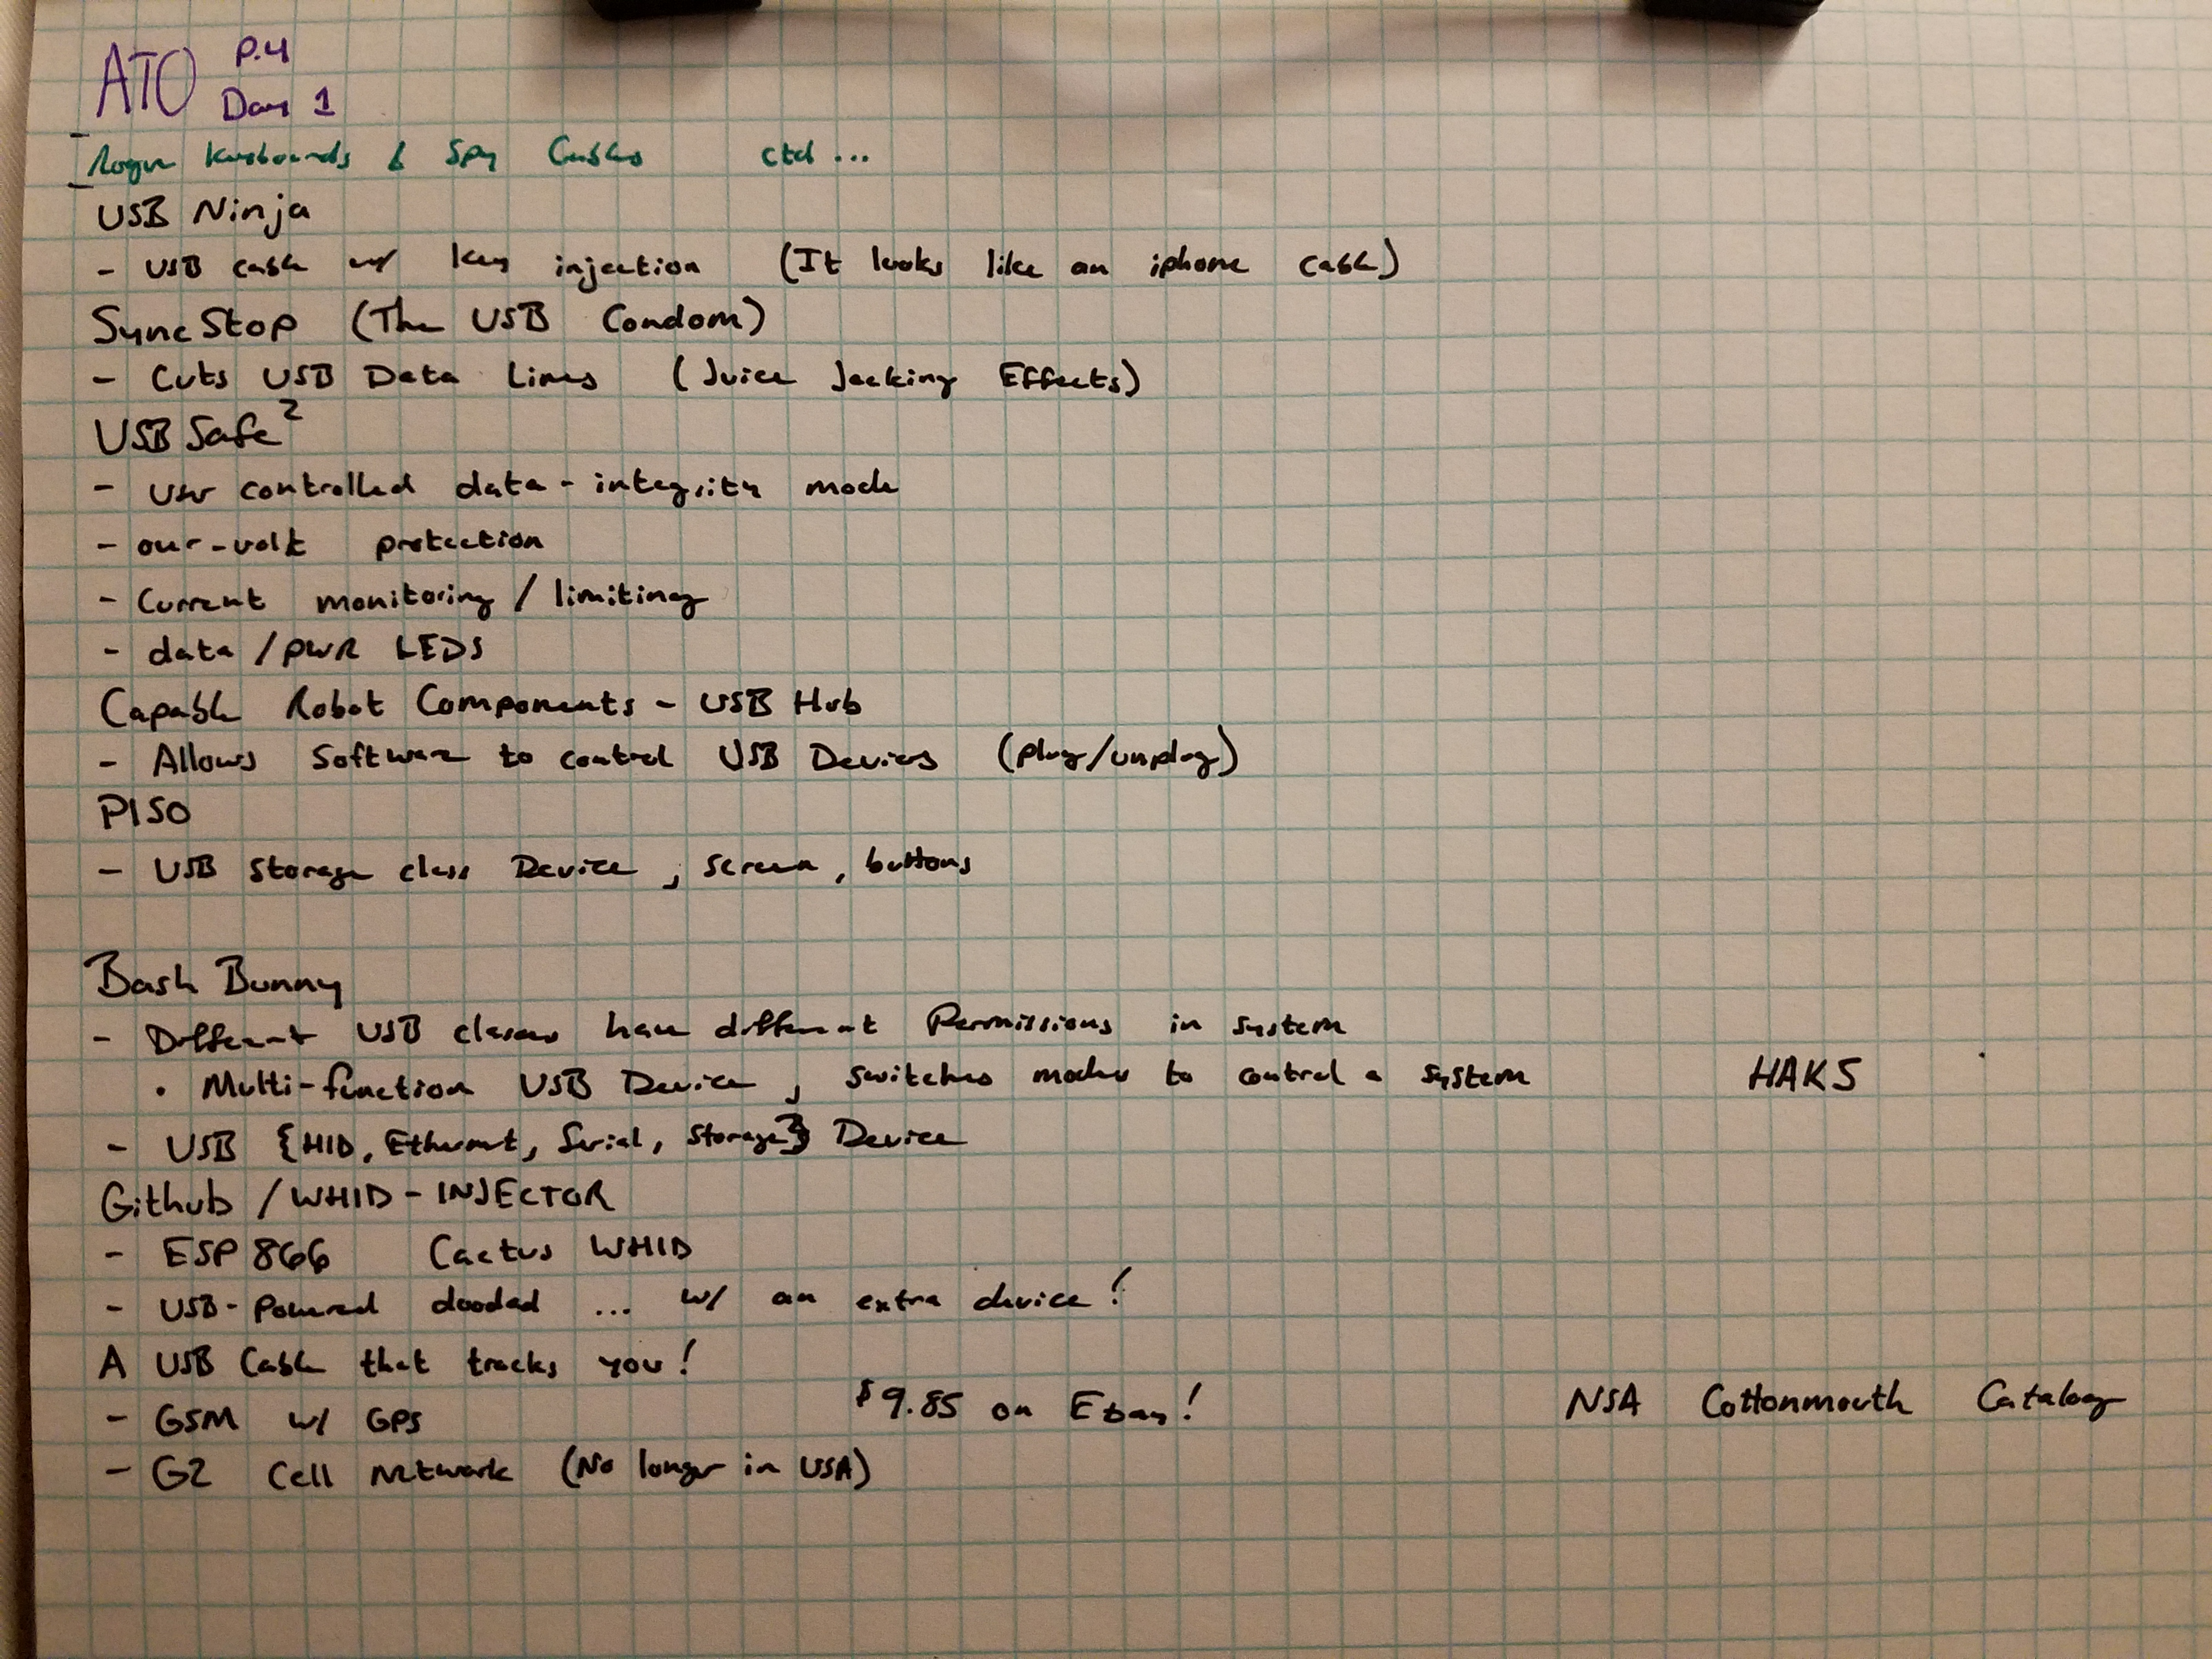 P.4
ATO Day 1
Rogue keyboards & Spy Cables ctd...
USB Ninja
- USB cable w/ key injection (It looks like an iphone cable)
SyncStop (The USB Condom)
- Cuts USB Data Lines (Juice Jacking Effects)
USB Safe²
- User controlled data-integrity mode
- over-volt protection
- Current monitoring/limiting
- data/pwr LEDs
Capable Robot Components - USB Hub
- Allows Software to control USB Devices (plug/unplug)
PISO
- USB Storage class Device, screen, buttons
Bash Bunny
- Different USB classes have different Permissions in system
· Multi-function USB Device, switches modes to control a system HAK5
- USB {HID, Ethernet, Serial, Storage} Device
Github/WHID-INJECTOR
- ESP8266 Cactus WHID
- USB-Powered ... w/ an extra device!
A USB Cable that tracks you!
- GSM w/ GPS $9.85 on Ebay! NSA Cottonmouth Catalog
- G2 Cell Network (No longer in USA)